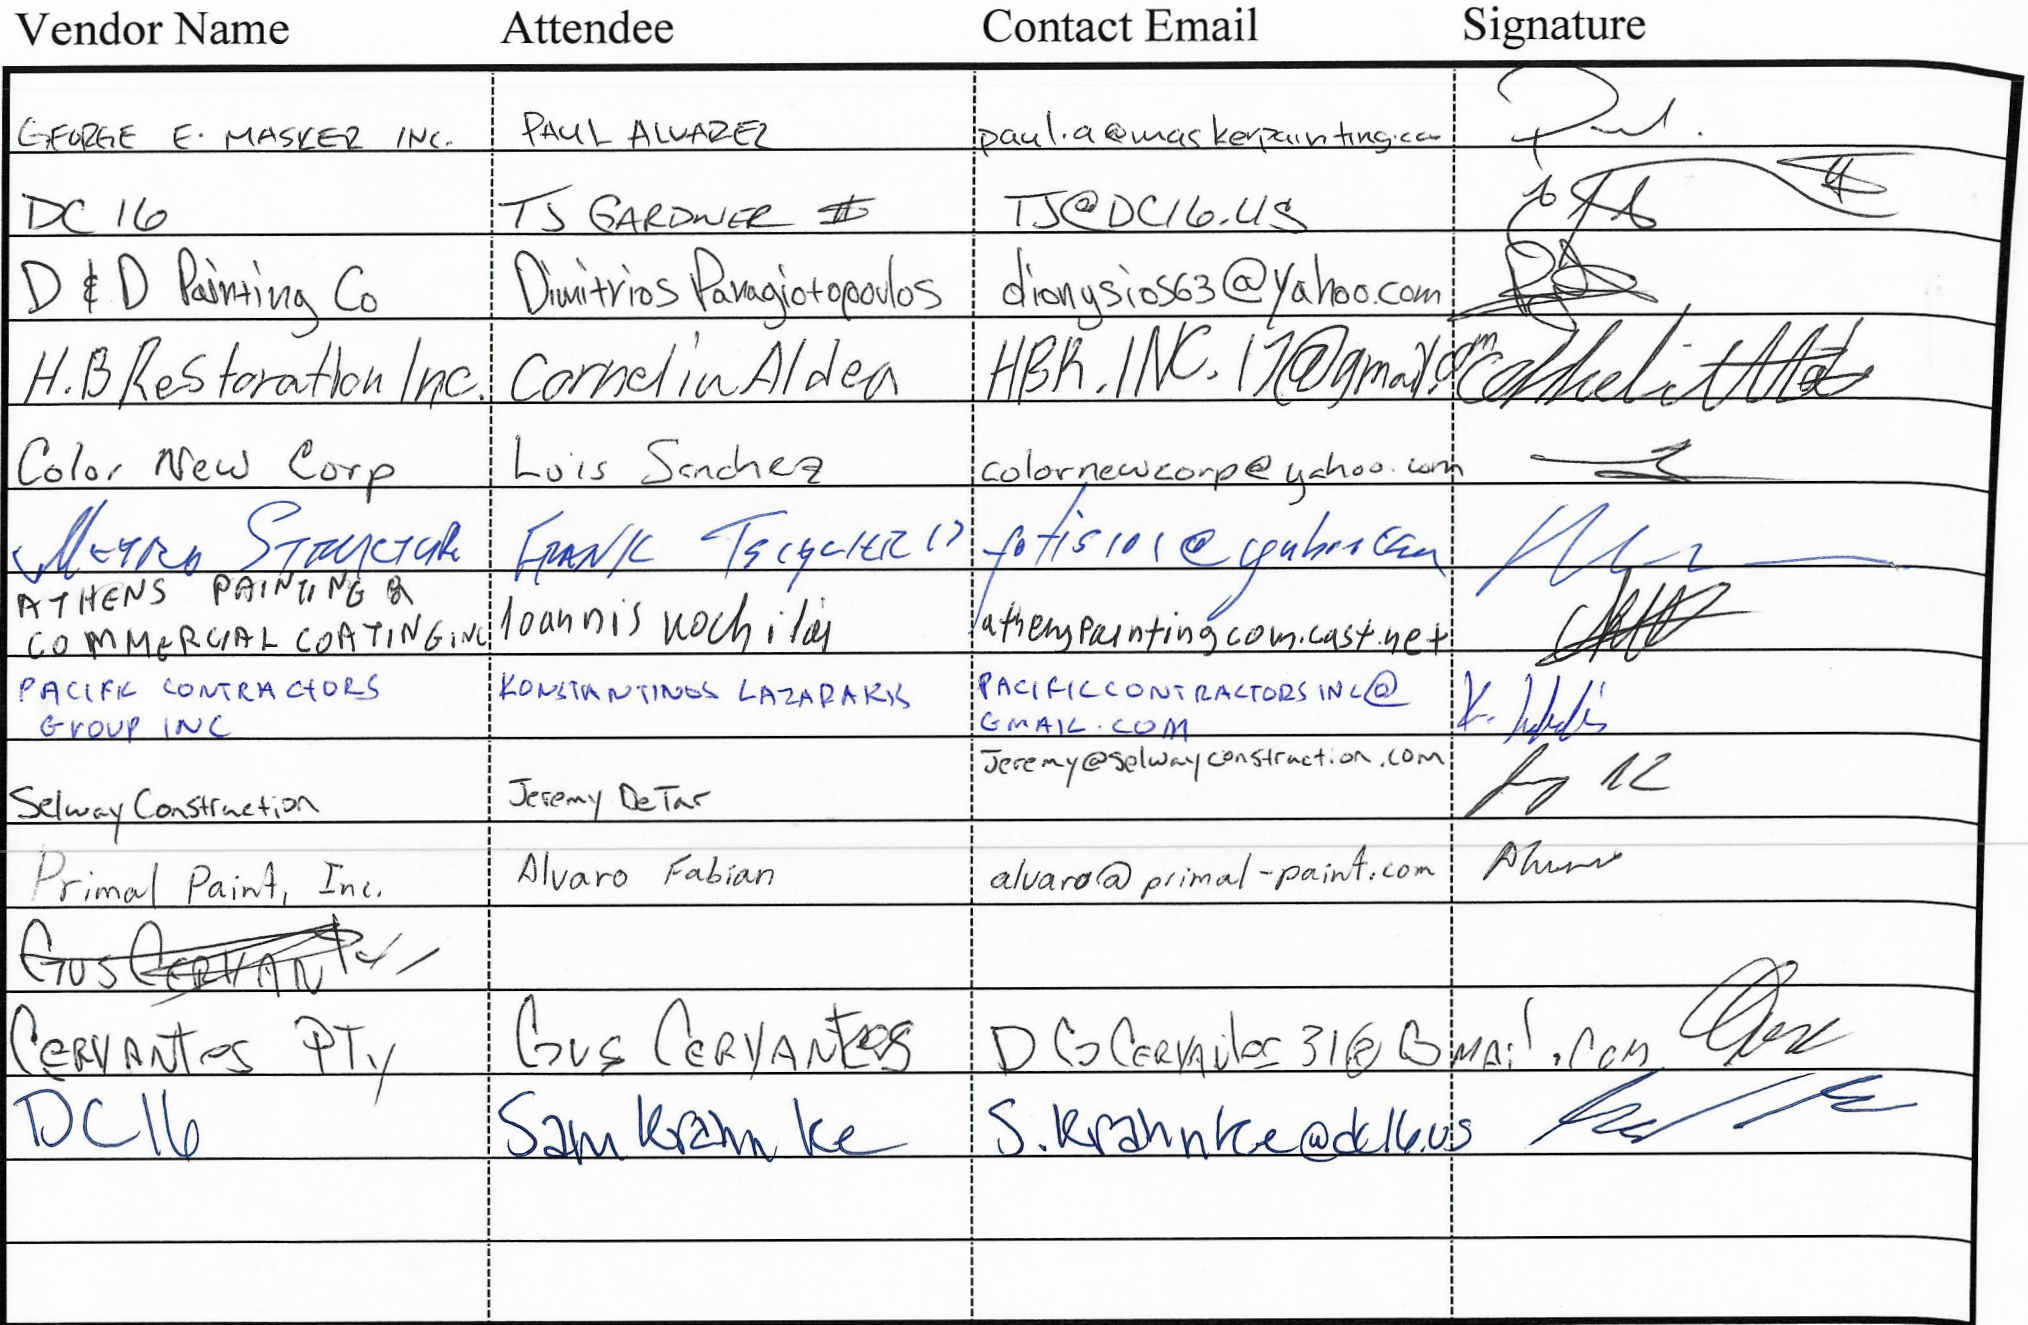 Vendor Name Attendee Contact Email Signature
GEORGE E. MASKER INC. PAUL ALVAREZ paul.a@maskerpainting.co
DC 16 TJ GARDNER II TJ@DC16.US
D & D Painting Co Dimitrios Panagiotopoulos dionysios63@yahoo.com
H.B Restoration Inc. Cornelin Aldea HBR.INC.17@gmail.com
Color New Corp Luis Sanchez colornewcorp@yahoo.com
METRO STRUCTURE FRANK
ATHENS PAINTING &
COMMERCIAL COATING INC Ioannis Kochilas athenspaintingcom.cast.net
PACIFIC CONTRACTORS KONSTANTINOS LAZARAKIS PACIFICCONTRACTORSINC@
GROUP INC GMAIL.COM
Jeremy@selwayconstruction.com
Selway Construction Jeremy DeTar
Primal Paint, Inc. Alvaro Fabian alvaro@primal-paint.com
GUS CERVANT
CERVANTES PTY GUS CERVANTES
DC16 Sam Krahnke S.Krahnke@dc16.us